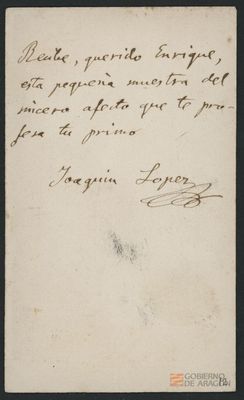 Recibe, querido Enrique,
esta pequeña muestra del
sincero afecto que te pro-
fesa tu primo
Joaquin Lopez
GOBIERNO
DE ARAGON